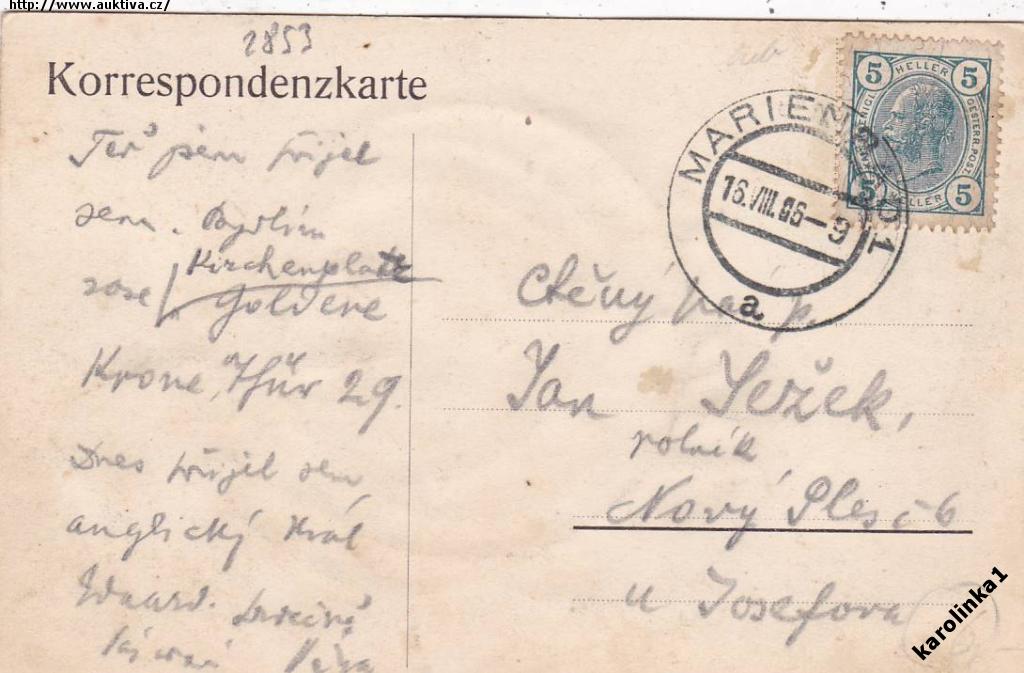 http://www.auktiva.cz/
2853
Korrespondenzkarte
5 HELLER 5
KAIS. KÖNIGL. OESTERR. POST.
5 HELLER 5
MARIENBAD 1
16.VIII.06–9
a
Teď jsem přijel
sem. Bydlím
Kirchenplatz
Goldene
Krone, Thür 29.
Dnes přijel sem
anglický král
Eduard. Srdečně
Ctěný pán p.
Jan Ježek,
rolník
Nový Ples č 6
u Josefova
karolinka1